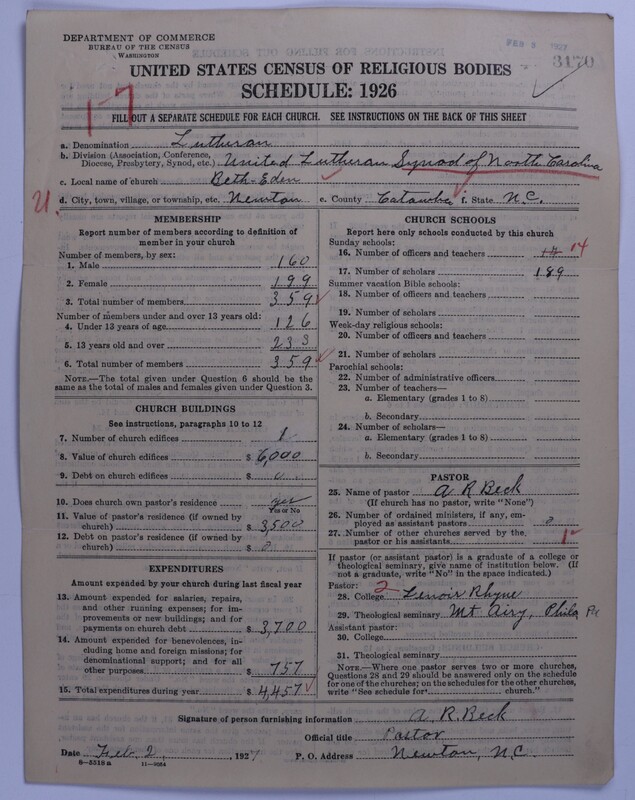 DEPARTMENT OF COMMERCE
BUREAU OF THE CENSUS
WASHINGTON
FEB 9 1927
3170
UNITED STATES CENSUS OF RELIGIOUS BODIES
SCHEDULE: 1926
17
FILL OUT A SEPARATE SCHEDULE FOR EACH CHURCH. SEE INSTRUCTIONS ON THE BACK OF THIS SHEET
a. Denomination Lutheran
b. Division (Association, Conference, Diocese, Presbytery, Synod, etc.) United Lutheran Synod of North Carolina
c. Local name of church Beth-Eden
d. City, town, village, or township, etc. Newton e. County Catawba f. State N.C.
MEMBERSHIP
Report number of members according to definition of member in your church
Number of members, by sex:
1. Male 160
2. Female 199
3. Total number of members 359
Number of members under and over 13 years old:
4. Under 13 years of age 126
5. 13 years old and over 233
6. Total number of members 359
NOTE.—The total given under Question 6 should be the same as the total of males and females given under Question 3.
CHURCH BUILDINGS
See instructions, paragraphs 10 to 12
7. Number of church edifices 1
8. Value of church edifices $ 6,000
9. Debt on church edifices $ 0
10. Does church own pastor's residence yes
Yes or No
11. Value of pastor's residence (if owned by church) $ 3,500
12. Debt on pastor's residence (if owned by church) $ 0
EXPENDITURES
Amount expended by your church during last fiscal year
13. Amount expended for salaries, repairs, and other running expenses; for improvements or new buildings; and for payments on church debt $ 3,700
14. Amount expended for benevolences, including home and foreign missions; for denominational support; and for all other purposes $ 757
15. Total expenditures during year $ 4,457
CHURCH SCHOOLS
Report here only schools conducted by this church
Sunday schools:
16. Number of officers and teachers 14
17. Number of scholars 189
Summer vacation Bible schools:
18. Number of officers and teachers
19. Number of scholars
Week-day religious schools:
20. Number of officers and teachers
21. Number of scholars
Parochial schools:
22. Number of administrative officers
23. Number of teachers—
a. Elementary (grades 1 to 8)
b. Secondary
24. Number of scholars—
a. Elementary (grades 1 to 8)
b. Secondary
PASTOR
25. Name of pastor A R Beck
(If church has no pastor, write "None")
26. Number of ordained ministers, if any, employed as assistant pastors 0
27. Number of other churches served by the pastor or his assistants 1
If pastor (or assistant pastor) is a graduate of a college or theological seminary, give name of institution below. (If not a graduate, write "No" in the space indicated.)
Pastor: 2
28. College Lenoir Rhyne
29. Theological seminary Mt Airy, Phila Pa
Assistant pastor:
30. College
31. Theological seminary
NOTE.—Where one pastor serves two or more churches, Questions 28 and 29 should be answered only on the schedule for one of the churches; on the schedules for the other churches, write "See schedule for church."
Signature of person furnishing information A. R. Beck
Official title Pastor
Date Feb. 2, 1927 P. O. Address Newton, N.C.
8-5518a 11-9084